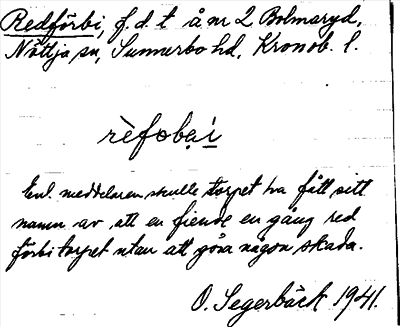 Redförbi, f. d. t å nr 2 Bolmaryd,
Nöttja sn, Sunnerbo hd, Kronob. l.
rèfobại
Enl. meddelaren skulle torpet ha fått sitt
namn av att en fiende en gång red
förbi torpet utan att göra någon skada.
O. Segerbäck 1941.